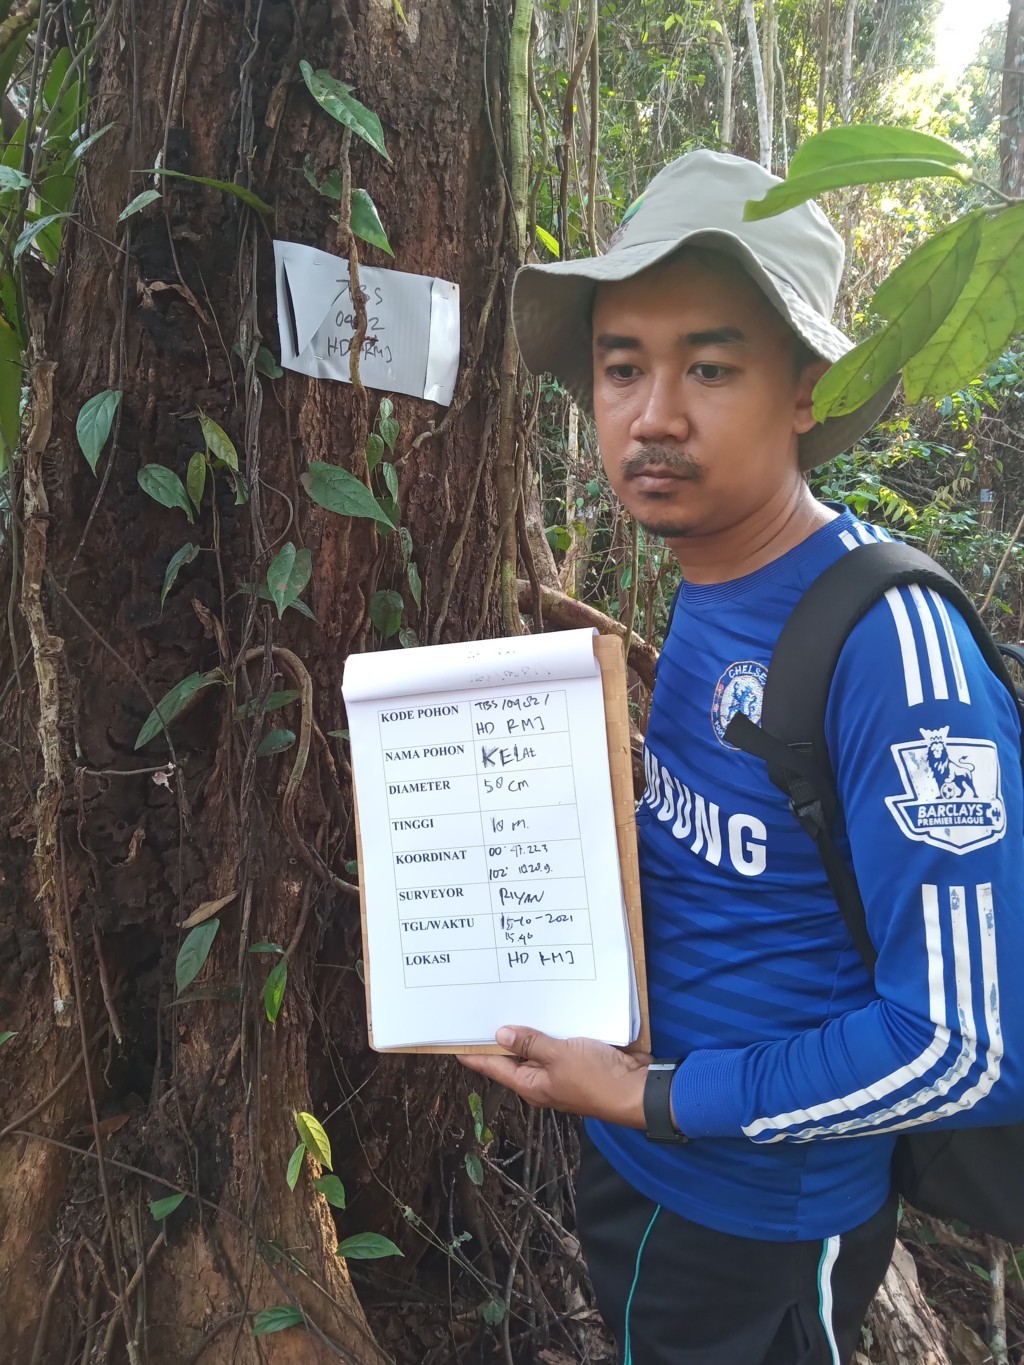 TBS
HD RMJ
KODE POHON TBS/0452/
HD RMJ
NAMA POHON KELAT
DIAMETER 58 cm
TINGGI 18 m.
KOORDINAT 00° 47.223
102°
SURVEYOR RIYAN
TGL/WAKTU 15-10-2021
15.40
LOKASI HD RMJ
CHELSEA
SUNG
BARCLAYS
PREMIER LEAGUE